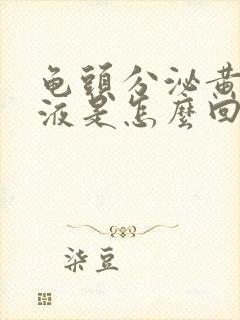 龟頭分泌黄
液是怎麼回
柒豆